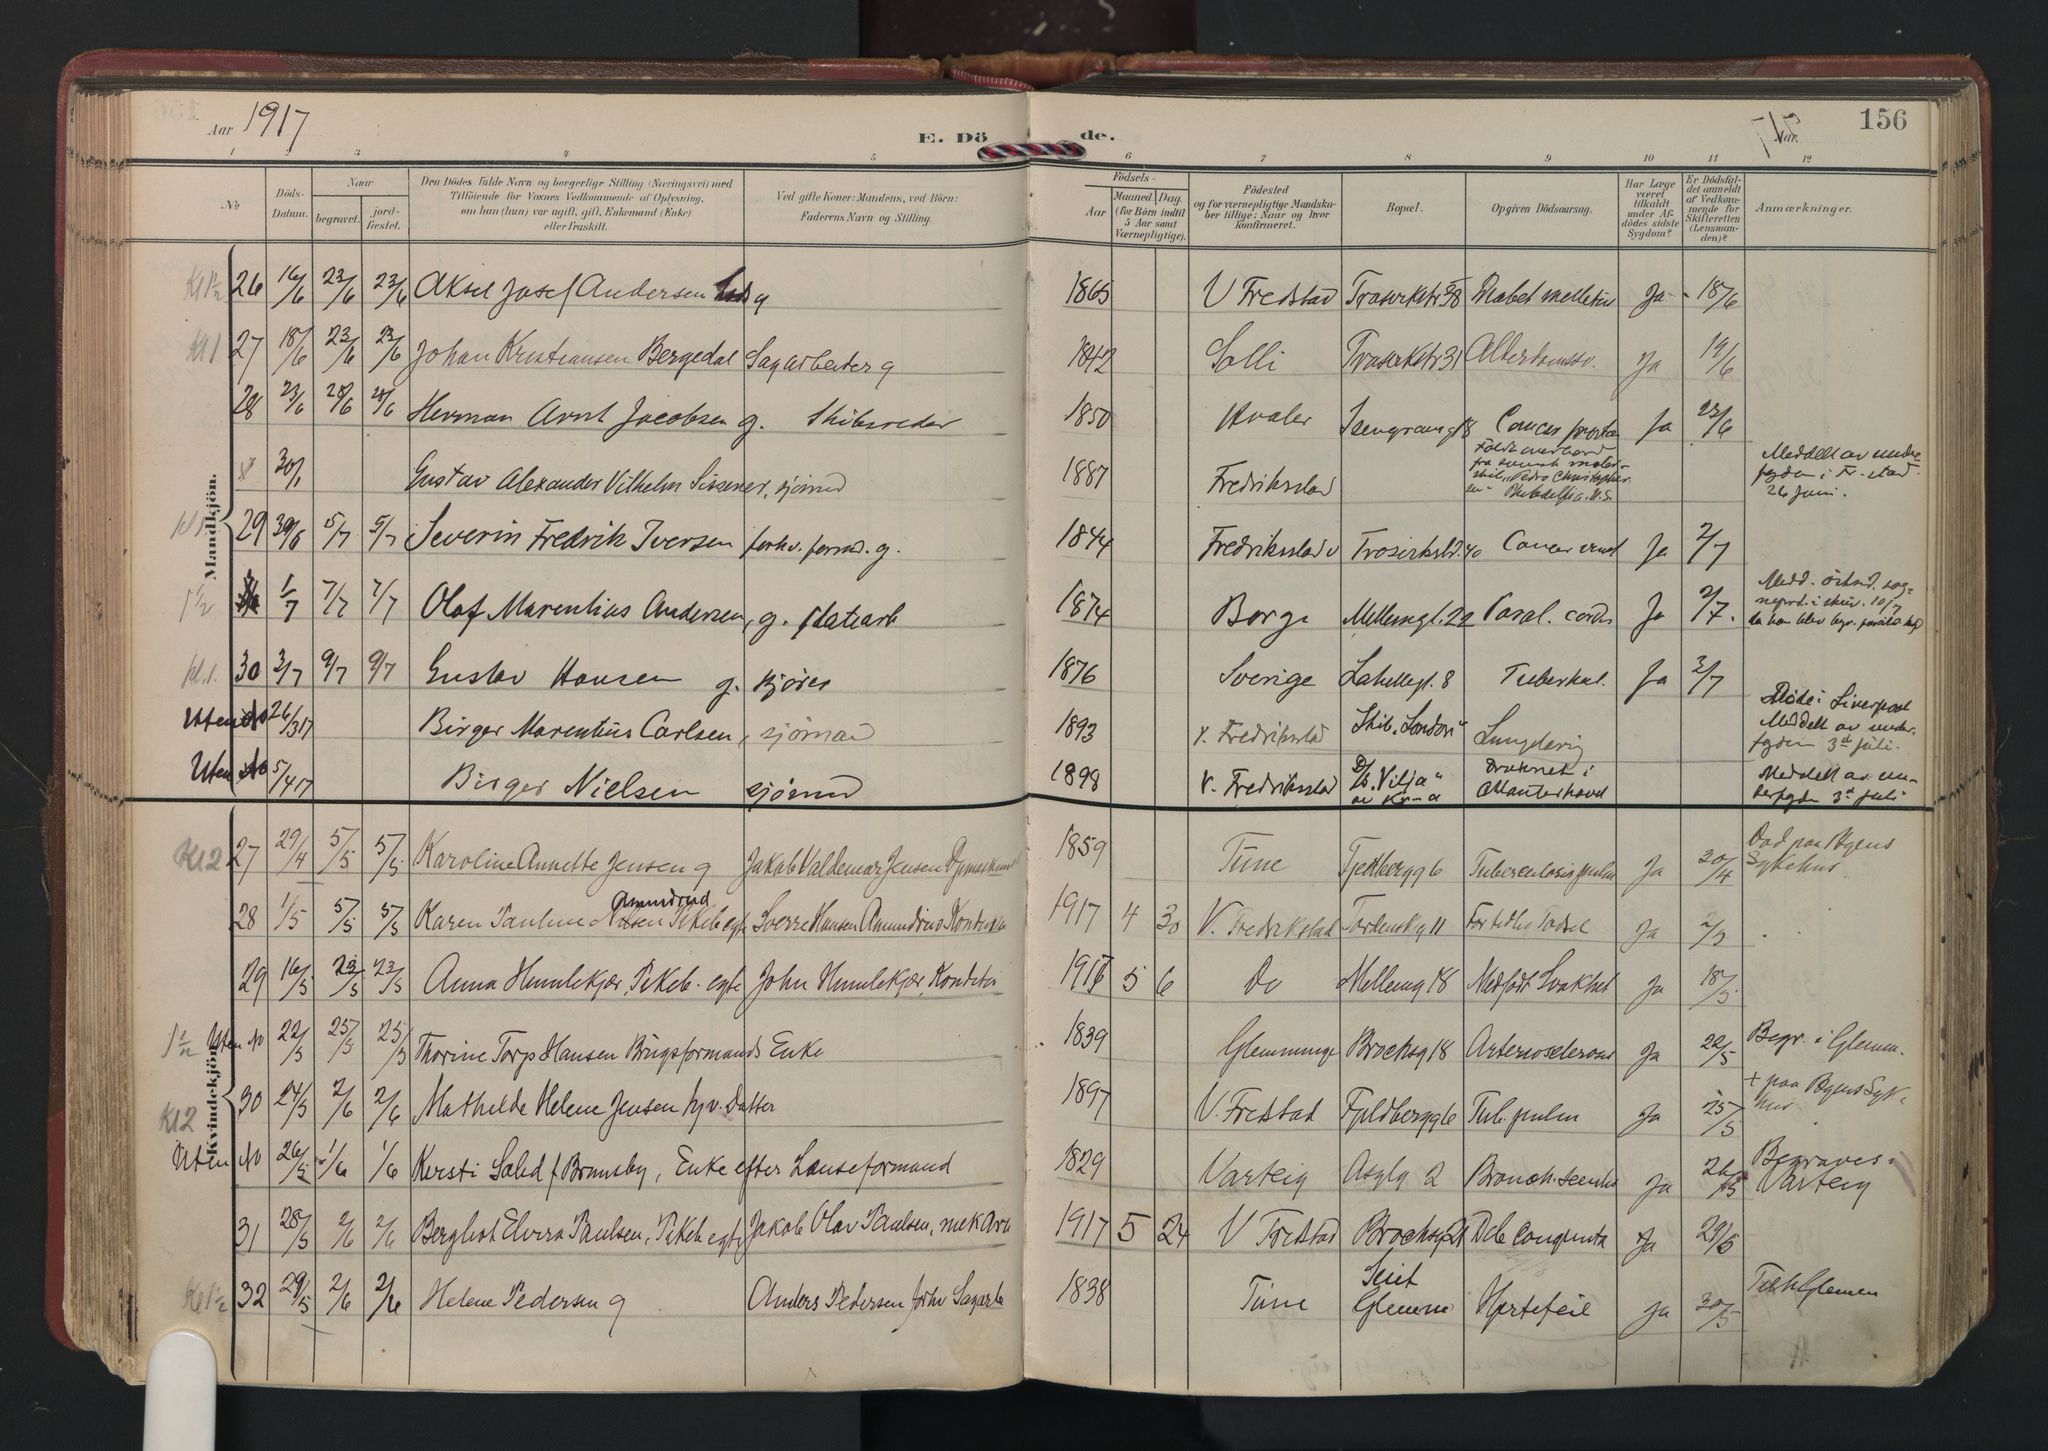 Aar 1917
E. Dö de.
Aar
156
1 2 3 4 5 6 7 8 9 10 11 12
No
Döds-Datum.
Naar
begravet.
jord-fæstet.
Den Dödes fulde Navn og borgerlige Stilling (Næringsvei) med
Tilföiende for Voxnes Vedkommende af Oplysning,
om han (hun) var ugift, gift, Enkemand (Enke)
eller fraskilt.
Ved gifte Koner: Mandens, ved Börn:
Faderens Navn og Stilling.
Födsels-
Aar
Maaned Dag.
(for Börn indtil
5 Aar samt
Værnepligtige).
Födested
og for værnepligtige Mandska-
ber tillige: Naar og hvor
konfirmeret.
Bopæl.
Opgiven Dödsaarsag.
Har Læge
været
tilkaldt
under Af-
dödes sidste
Sygdom?
Er Dödsfal-
det anmeldt
af Vedkom-
mende for
Skifteretten
(Lensman-
den)?
Anmærkninger.
Mandkjön.
26 16/6 23/6 23/6 Aksel Josef Andersen g 1865 V Fredstad Ja 18/6
27 18/6 23/6 23/6 Johan Kristiansen Bergedal Sagarbeider g 1842 Solli Ja 19/6
28 23/6 28/6 28/6 Herman Arnt Jacobsen g. Skibsreder 1850 Hvaler Cancer Ja 23/6
30/1 Gustav Alexander Vilhelm Sissener, sjömd 1887 Fredriksstad Faldt overbord fra svensk motor- Meddelt av undr fogden i Fr-stad 26 juni.
29 30/6 5/7 5/7 Severin Fredrik Iversen forhv. formd. g. 1844 Fredriksstad Cancer vent Ja 2/7
1/7 7/7 7/7 Olaf Marentius Andersen, g. 1874 Borge Mellemgt. 22 Paral. cordis Ja 2/7.
kl. 1. 30 3/7 9/7 9/7 Gustav Hansen g. 1876 Sverige Tuberkul. Ja 3/7
Uten No 26/3 17 Birger Marentius Carlsen, sjömand 1893 v. Fredriksstad Skib. "London" Död i Liverpool Meddelt av under- fogden 3d juli.
Uten No 5/4 17 Birger Nielsen sjömd 1898 V. Fredriksstad D/s. "Vilja" Druknet i Atlanterhavet Meddelt av un- derfogden 3d juli
Kvindekjön.
Kl 2 27 29/4 5/5 5/5 Karoline Annette Jensen g Jakob Valdemar Jensen 1859 Tune Fjeldbergg 6 Tuberculosis pulm Ja 30/4 Död paa Byens Sykehus
28 1/5 5/5 5/5 Karen Pauline Amundrud Pikeb egte Sverre Hansen Amundrud Konduktör 1917 4 30 V. Fredrikstad Tordenskg 11 For tidlig Födsel Ja 2/5
29 16/5 23/5 23/5 Anna Humlekjær, Pikeb. egte John Humlekjær, Konditor 1916 5 6 Do Mellemg 18 Medfödt Svakhet Ja 18/5
1 1/2 Uten No 22/5 25/5 25/5 Thorine Torp Hansen Brugsformands Enke 1839 Glemminge Brochsg 18 Arteriosclerose Ja 22/5 Begr. i Glemm.
Kl 2 30 24/5 2/6 2/6 Mathilde Helene Jensen hjv. Datter 1897 V. Fredstad Fjeldbergg 6 Tub. pulm Ja 25/5 + paa Byens Syk- hus
Uten No 26/5 1/6 1/6 Kersti f Brunsby, Enke efter Lanseformand 1829 Varteig Asylg 2 Bronch. senilis Ja 26/5 Begraves Varteig
31 28/5 2/6 2/6 Bergliot Elvira Paulsen, Pikeb egte Jakob Olav Paulsen, mek Arb 1917 5 24 V Fredstad Ja 29/5
Kl 1 1/2 32 29/5 2/6 2/6 Helene Pedersen g Anders Pedersen forhv Sagarb 1838 Tune Glemme Hjertefeil Ja 30/5